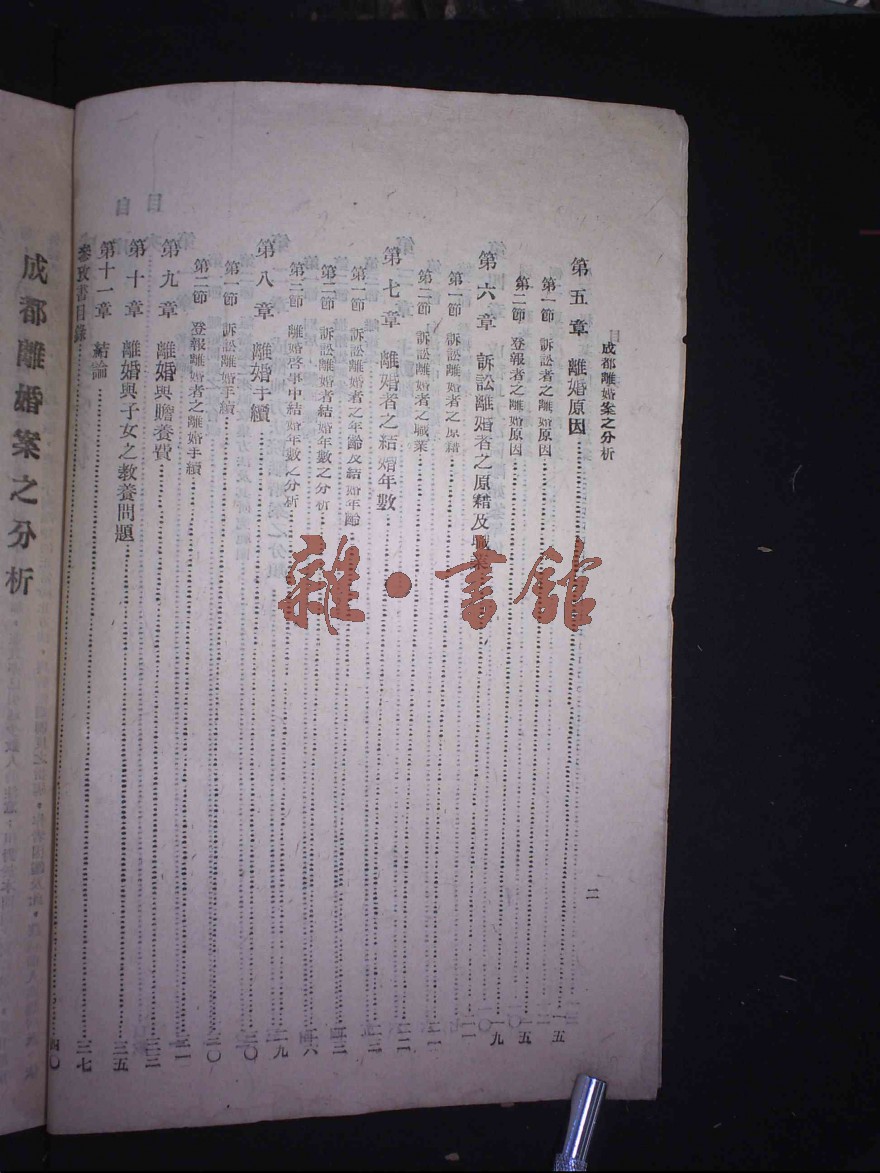 成都離婚案之分析
二
第五章 離婚原因
第一節 訴訟者之離婚原因 一五
第二節 登報者之離婚原因 一五
第六章 訴訟離婚者之原籍及職業 一九
第一節 訴訟離婚者之原籍
第二節 訴訟離婚者之職業
第七章 離婚者之結婚年數
第一節 訴訟離婚者之年齡及結婚年齡
第二節 訴訟離婚者結婚年數之分析
第三節 離婚啓事中結婚年數之分析
第八章 離婚手續 二九
第一節 訴訟離婚手續 三〇
第二節 登報離婚者之離婚手續 三〇
第九章 離婚與贍養費
第十章 離婚與子女之教養問題
第十一章 結論 三五
參攷書目錄 三七
四〇
成都離婚案之分析
雜·書館